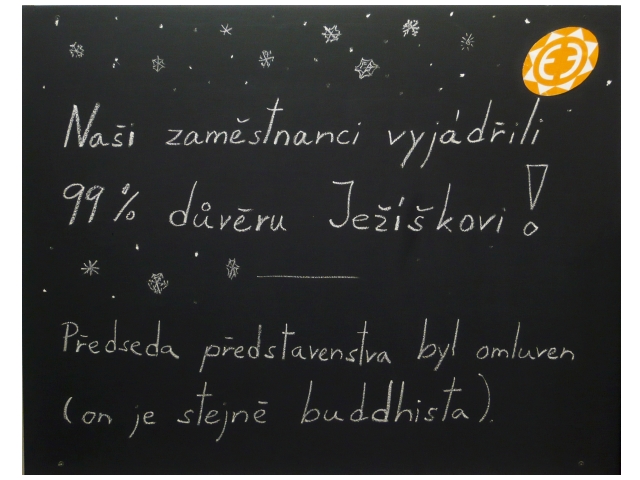 Naši zaměstnanci vyjádřili
99% důvěru Ježíškovi!
Předseda představenstva byl omluven
(on je stejně buddhista).